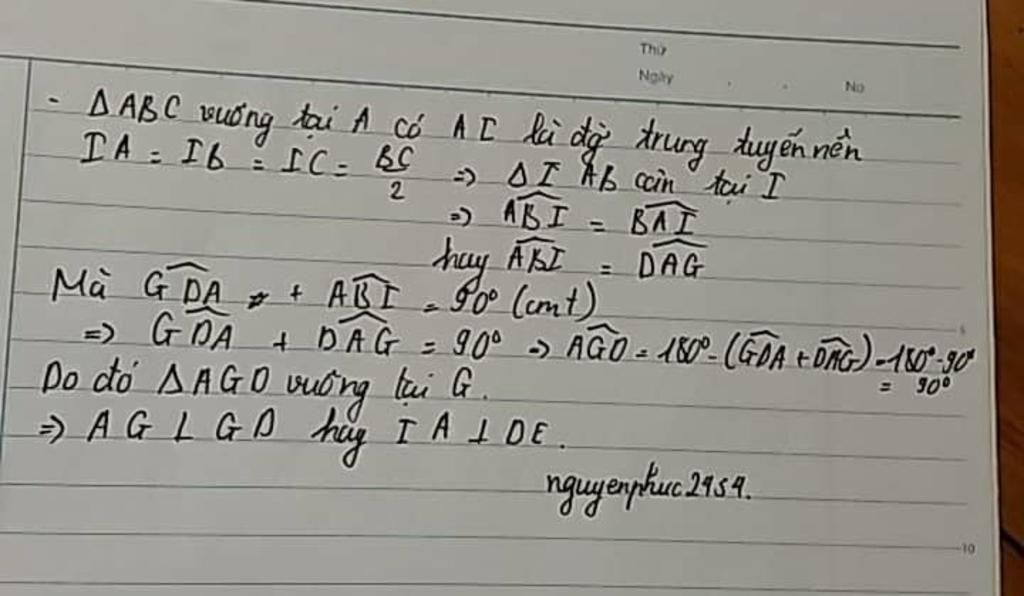 Thứ
Ngày . . No
- ΔABC vuông tại A có AI là đg trung tuyến nên
IA = IB = IC = BC/2 => ΔIAB cân tại I
=> \widehat{ABI} = \widehat{BAI}
hay \widehat{ABI} = \widehat{DAG}
Mà \widehat{GDA} + \widehat{ABI} = 90° (cmt)
=> \widehat{GDA} + \widehat{DAG} = 90° => \widehat{AGD} = 180° - (\widehat{GDA} + \widehat{DAG}) = 180° - 90°
= 90°
Do đó ΔAGD vuông tại G.
=> AG ⊥ GD hay IA ⊥ DE.
nguyenphuc2459.
5
10